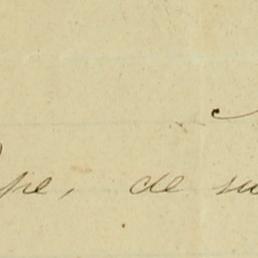 pe, de su